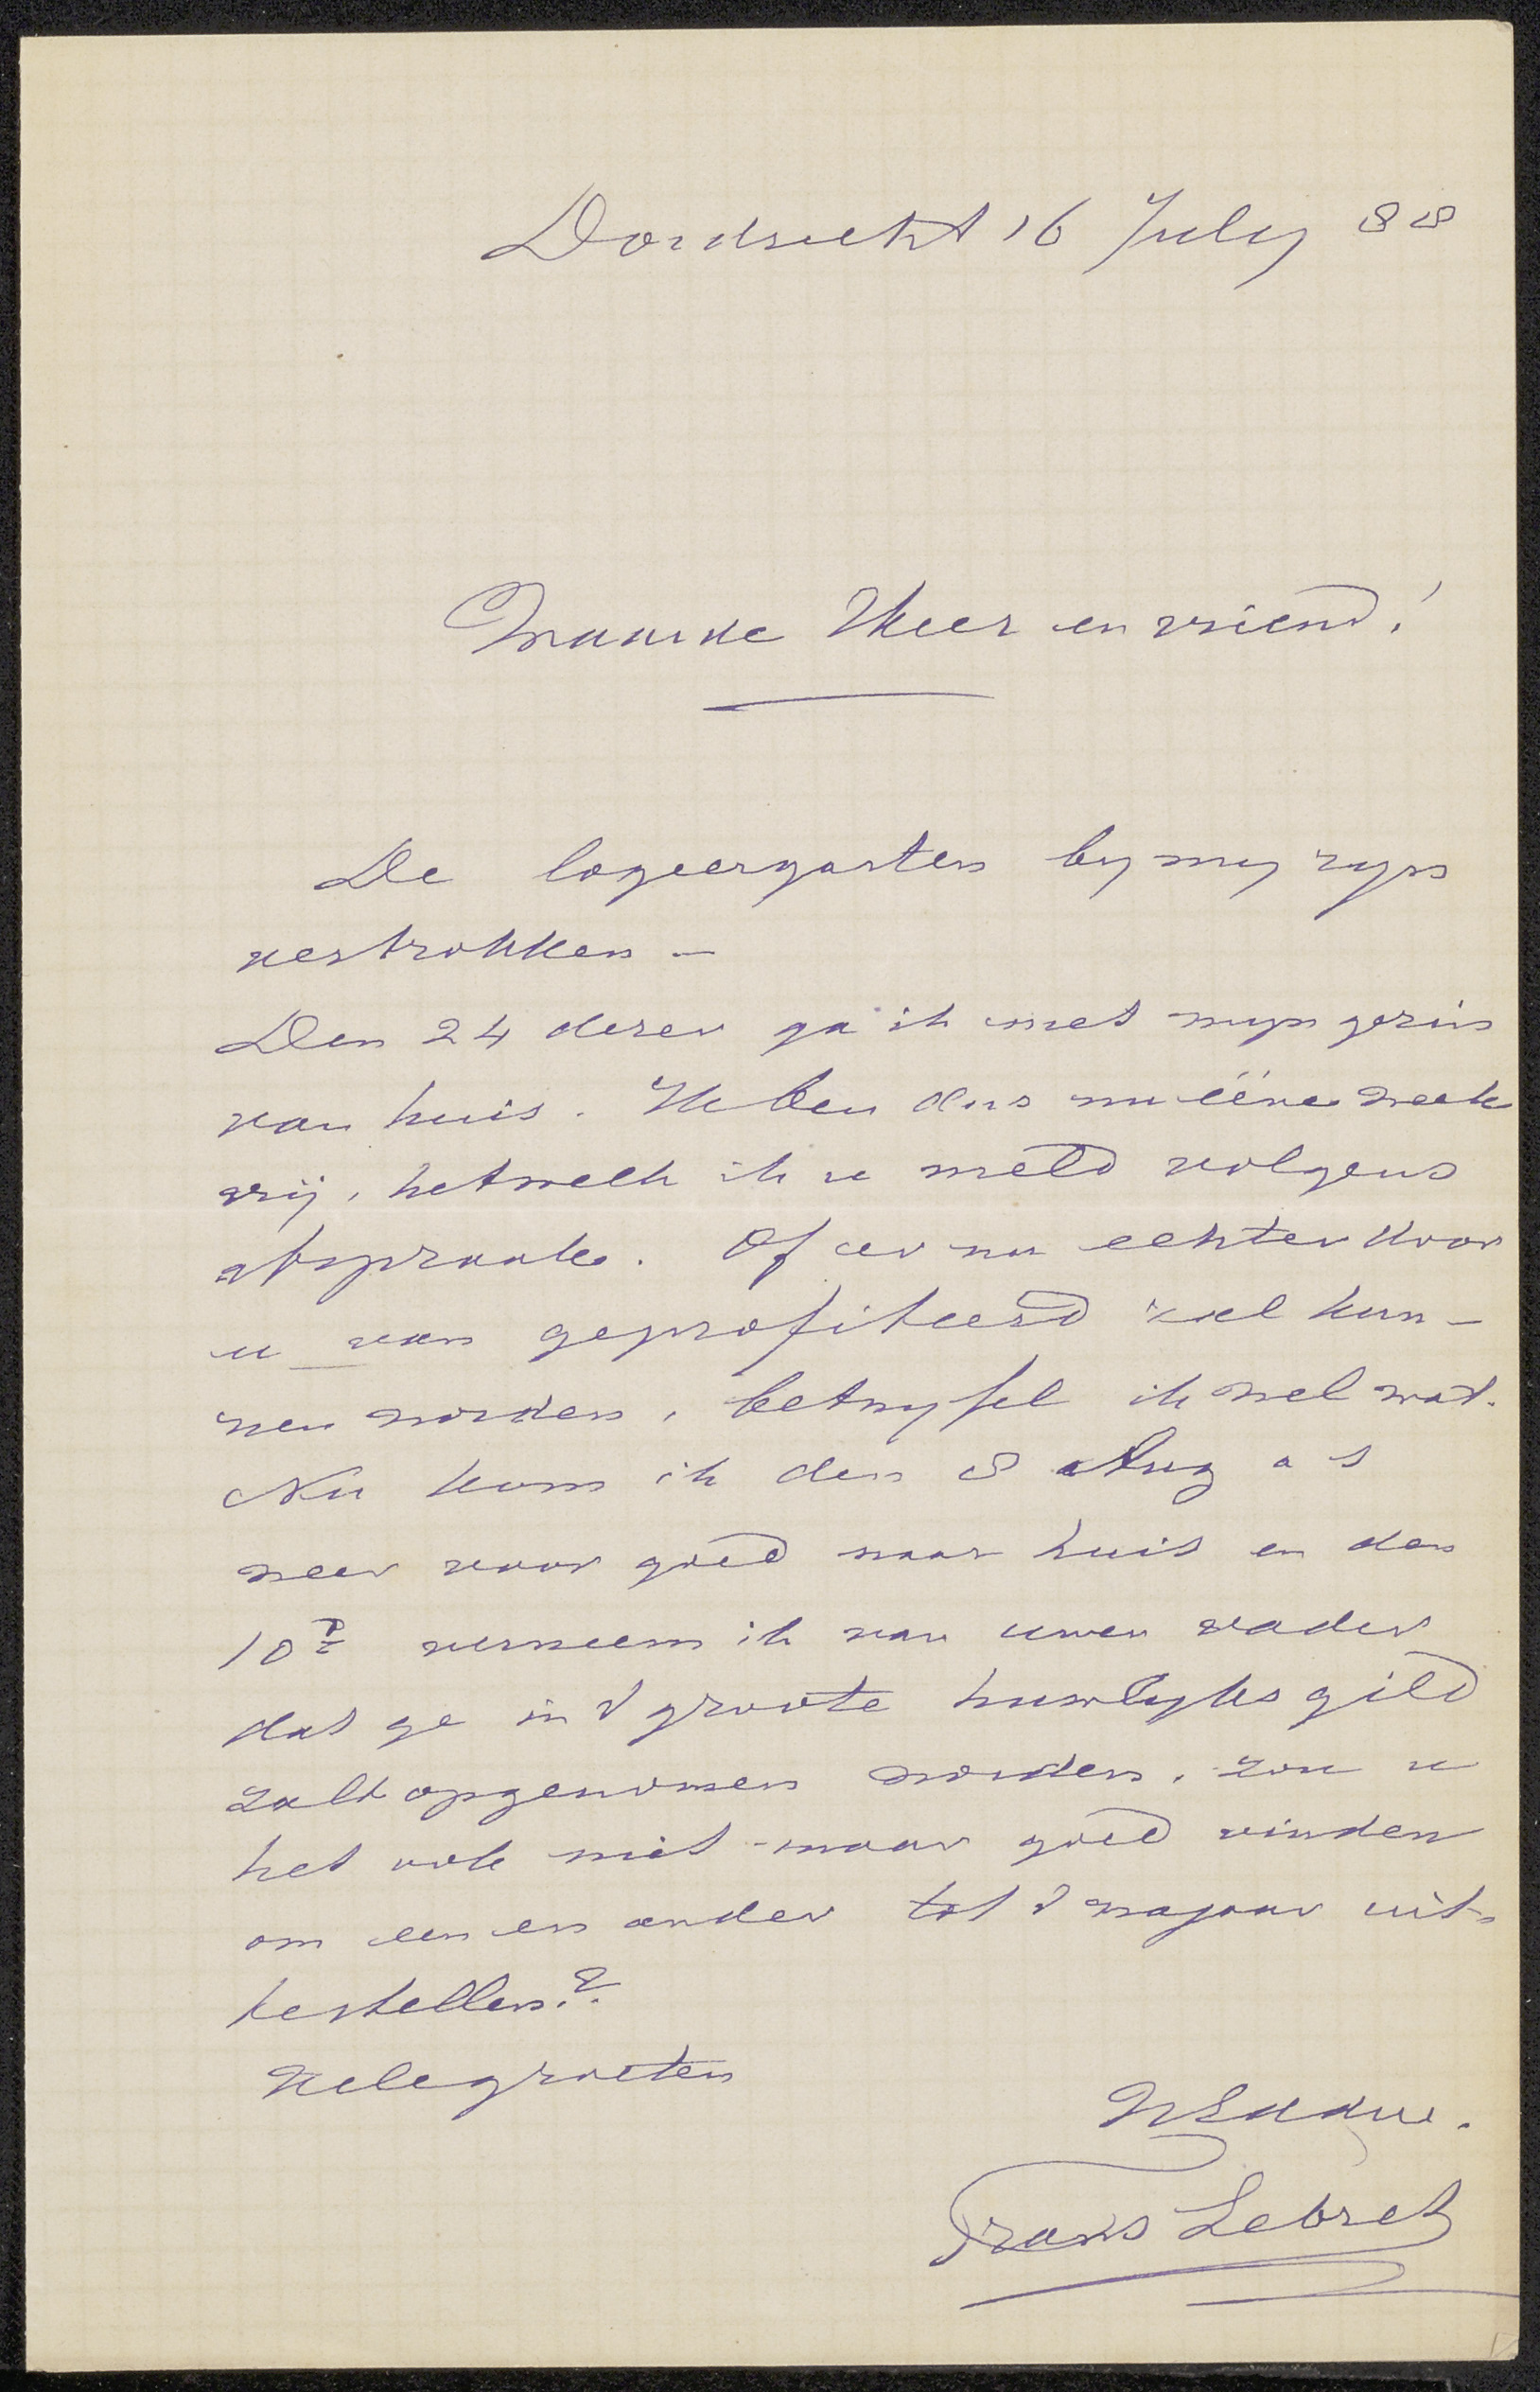 Dordrecht 16 July 88
Waarde Heer en vriend!
De logeergasten by my zyn
vertrokken –
Den 24 dezer ga ik met myn gezin
van huis. Ik ben dus nu ééne week
vrij, hetwelk ik u meld volgens
afspraak. Of er nu echter door
u van geprofiteerd zal kun-
nen worden, betwyfel ik wel wat.
Nu kom ik den 8 Aug a s
weer voor goed naar huis en den
10e verneem ik van uwen vader
dat ge in 't groote huwlyks gild
zult opgenomen worden. zou u
het ook niet maar goed vinden
om een en ander tot 't najaar uit-
testellen?
Vele groeten
Frans Lebret